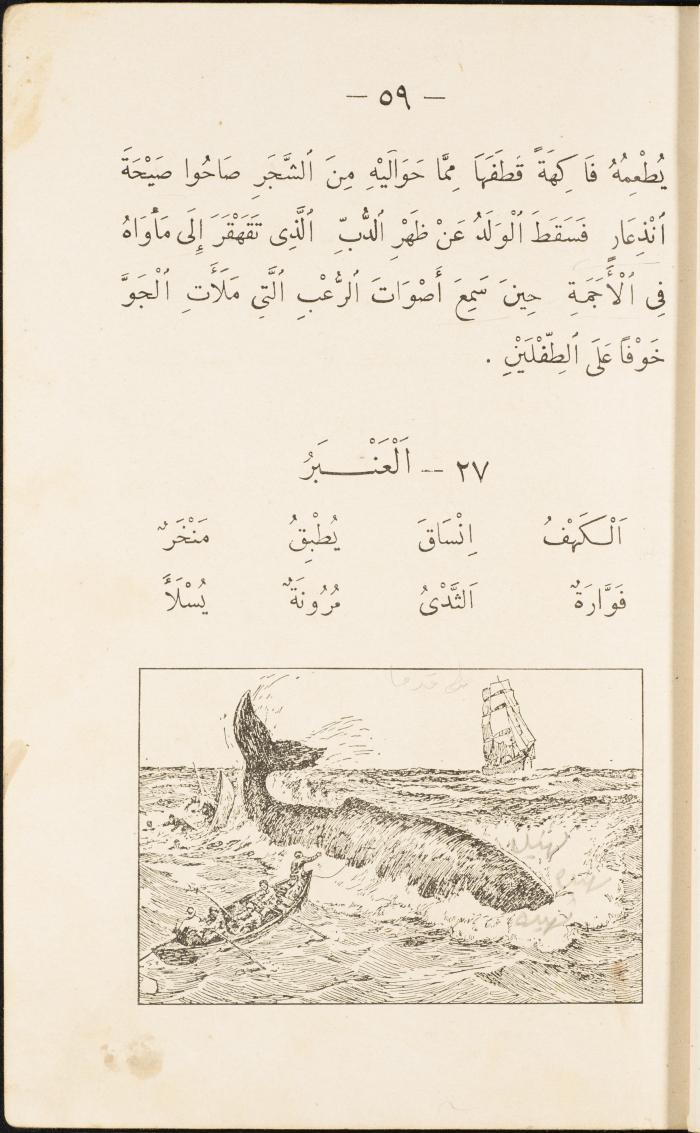 — ٥٩ —
يُطْعِمُهُ فَاكِهَةً قَطَفَهَا مِمَّا حَوَالَيْهِ مِنَ ٱلشَّجَرِ صَاحُوا صَيْحَةَ
ٱنْذِعَارٍ فَسَقَطَ ٱلْوَلَدُ عَنْ ظَهْرِ ٱلدُّبِّ ٱلَّذِى تَقَهْقَرَ إِلَى مَأْوَاهُ
فِى ٱلْأَجَمَةِ حِينَ سَمِعَ أَصْوَاتَ ٱلرُّعْبِ ٱلَّتِى مَلَأَتِ ٱلْجَوَّ
خَوْفًا عَلَى ٱلطِّفْلَيْنِ .
٢٧ — اَلْعَنْبَرُ
اَلْكَهْفُ اِنْسَاقَ يُطْبِقُ مَنْخَرٌ
فَوَّارَةٌ اَلثَّدْىُ مُرُونَةٌ يُسْلَأُ